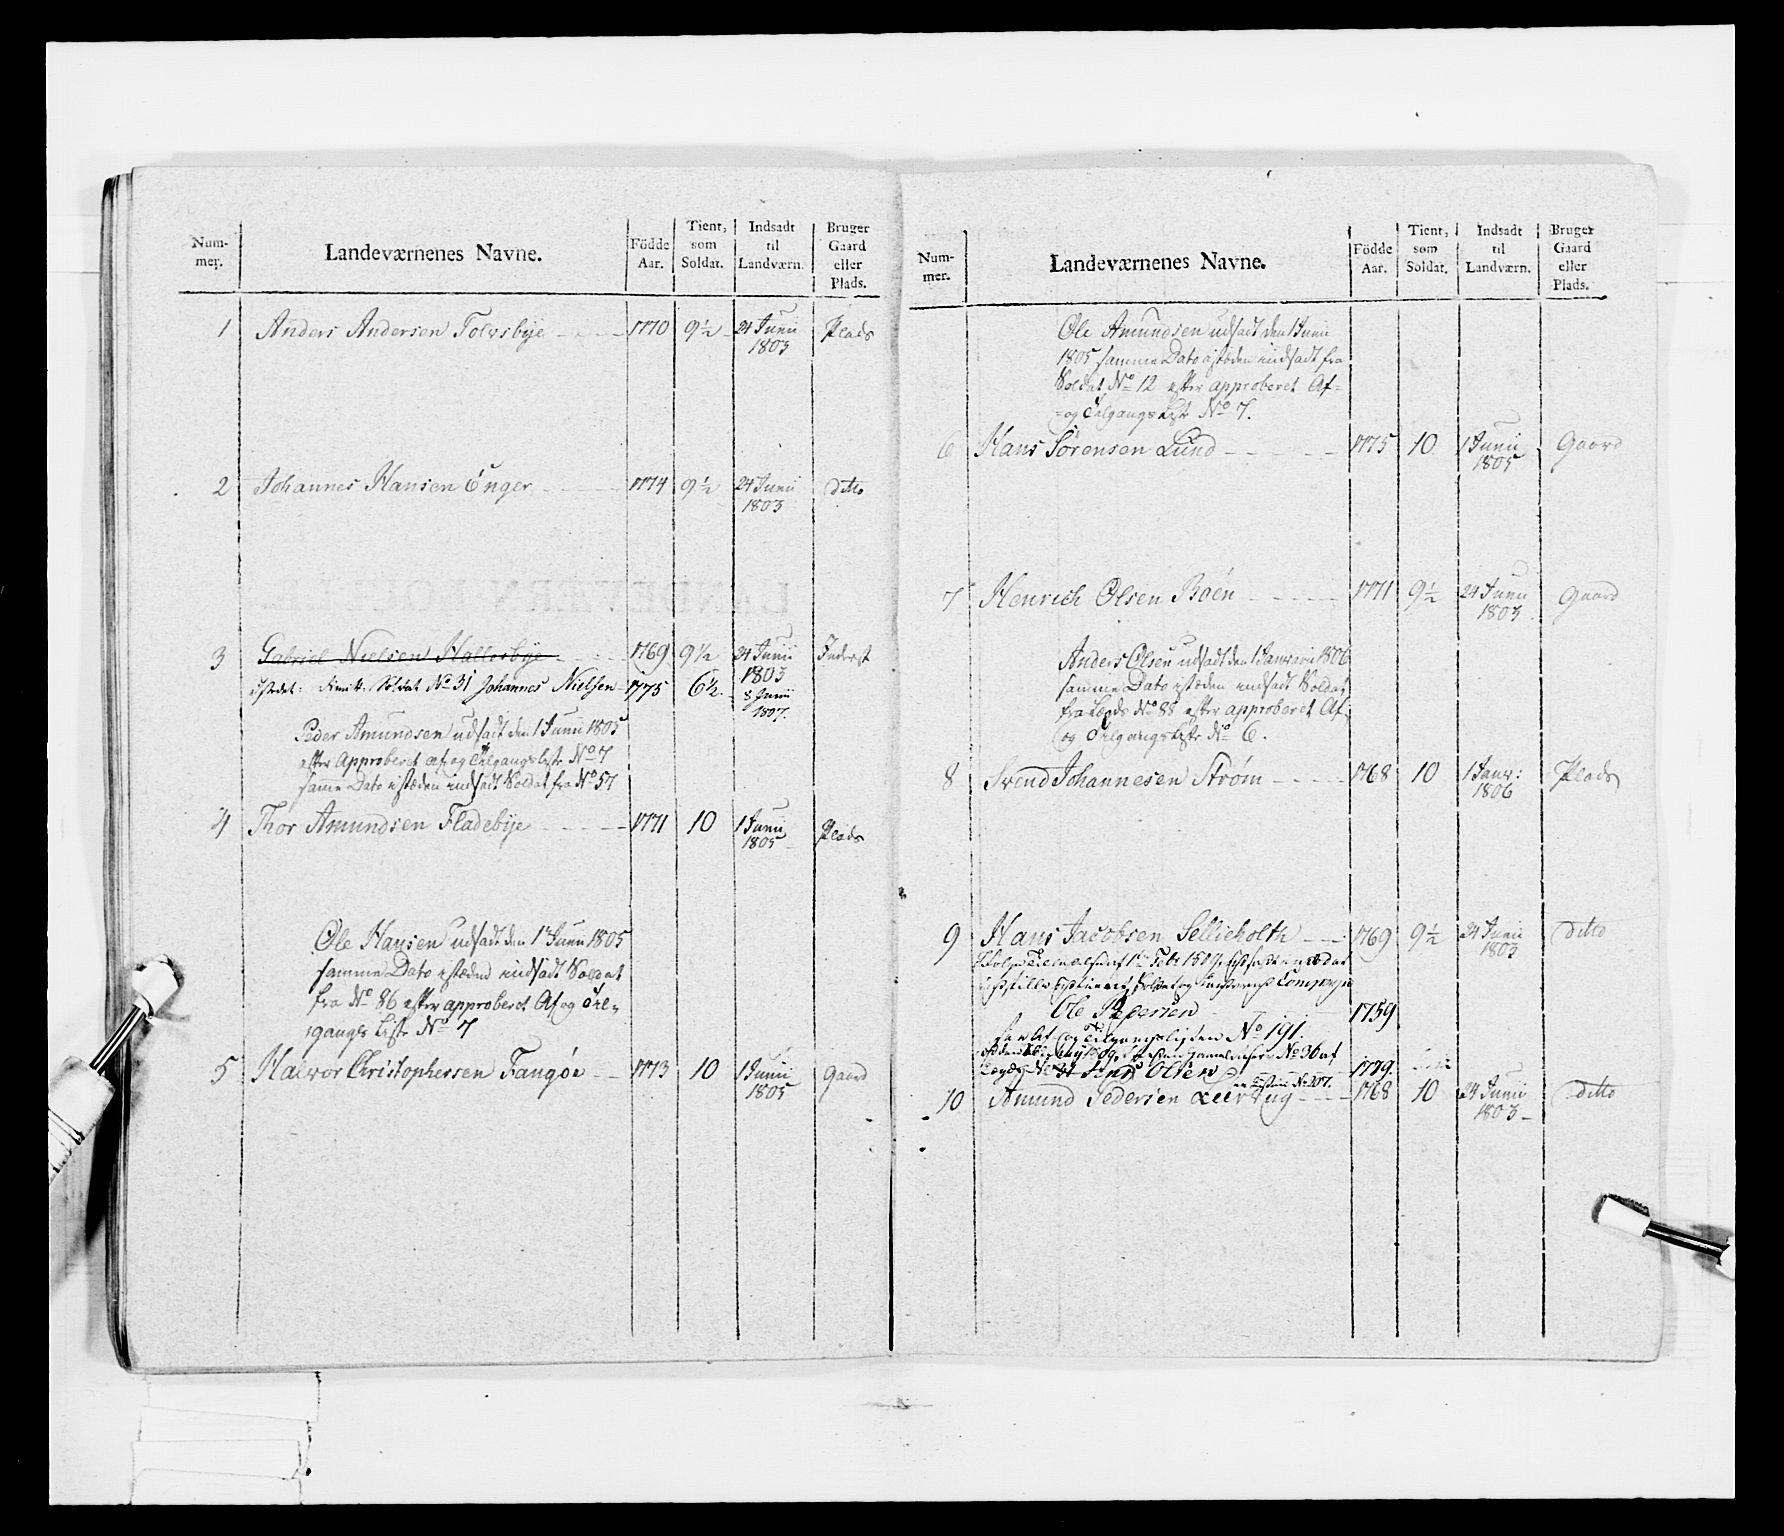 Num-
mer.
Landeværnenes Navne.
Födde
Aar.
Tient,
som
Soldat.
Indsadt
til
Landværn.
Bruger
Gaard
eller
Plads.
1 Anders Andersen Tolvsbye 1770 9½ 24 Junii Plads
1803
2 Johannes Hansen Enger 1774 9½ 24 Junii ditto
1803
3 Gabriel Nielsen Hallesbye 1769 9½ 24 Junii Inderst
1803
istedet: dimitt: Soldat No 31 Johannes Nielsen 1775 6½ 8 Junii
1807.
Peder Amundsen udsadt den 1 Junii 1805
efter Approberet af og Tilgangs Liste No 7
samme Dato istæden indsadt Soldat fra No 57
4 Thor Amundsen Fladebye 1771 10 1 Junii Plads
1805
Ole Hansen udsadt den 1 Junii 1805
samme Dato istæden indsadt Soldat
fra No 86 efter approberet Af og Til-
gangs Liste No 7
5 Halvor Christophersen Fangøe 1773 10 1 Junii Gaard
1805
Num-
mer.
Landeværnenes Navne.
Födde
Aar.
Tient,
som
Soldat.
Indsadt
til
Landværn.
Bruger
Gaard
eller
Plads.
Ole Amundsen udsadt den 1 Junii
1805 samme Dato istæden indsadt fra
Soldat No 12 efter approberet Af-
og Tilgangs Liste No 7.
6 Hans Sørensen Lund 1775 10 1 Junii Gaard
1805
7 Henrich Olsen Boen 1771 9½ 24 Junii Gaard
1803
Anders Olsen udsadt den 1 Januarii 1806
samme Dato istæden indsadt Soldat
fra Lægds No 88 efter approberet Af
og Tilgangs Liste No 6.
8 Svend Johannesen Strøm 1768 10 1 Janv: Plads
1806
9 Hans Jacobsen Sellieholth 1769 9½ 24 Junii ditto
1803
Compagn
Ole Pedersen 1759
Af og Tilgangslisten No 191.
No 36 af
Jens Olsen 1779.
No 207.
10 Amund Pedersen 1768 10 24 Junii ditto
1803